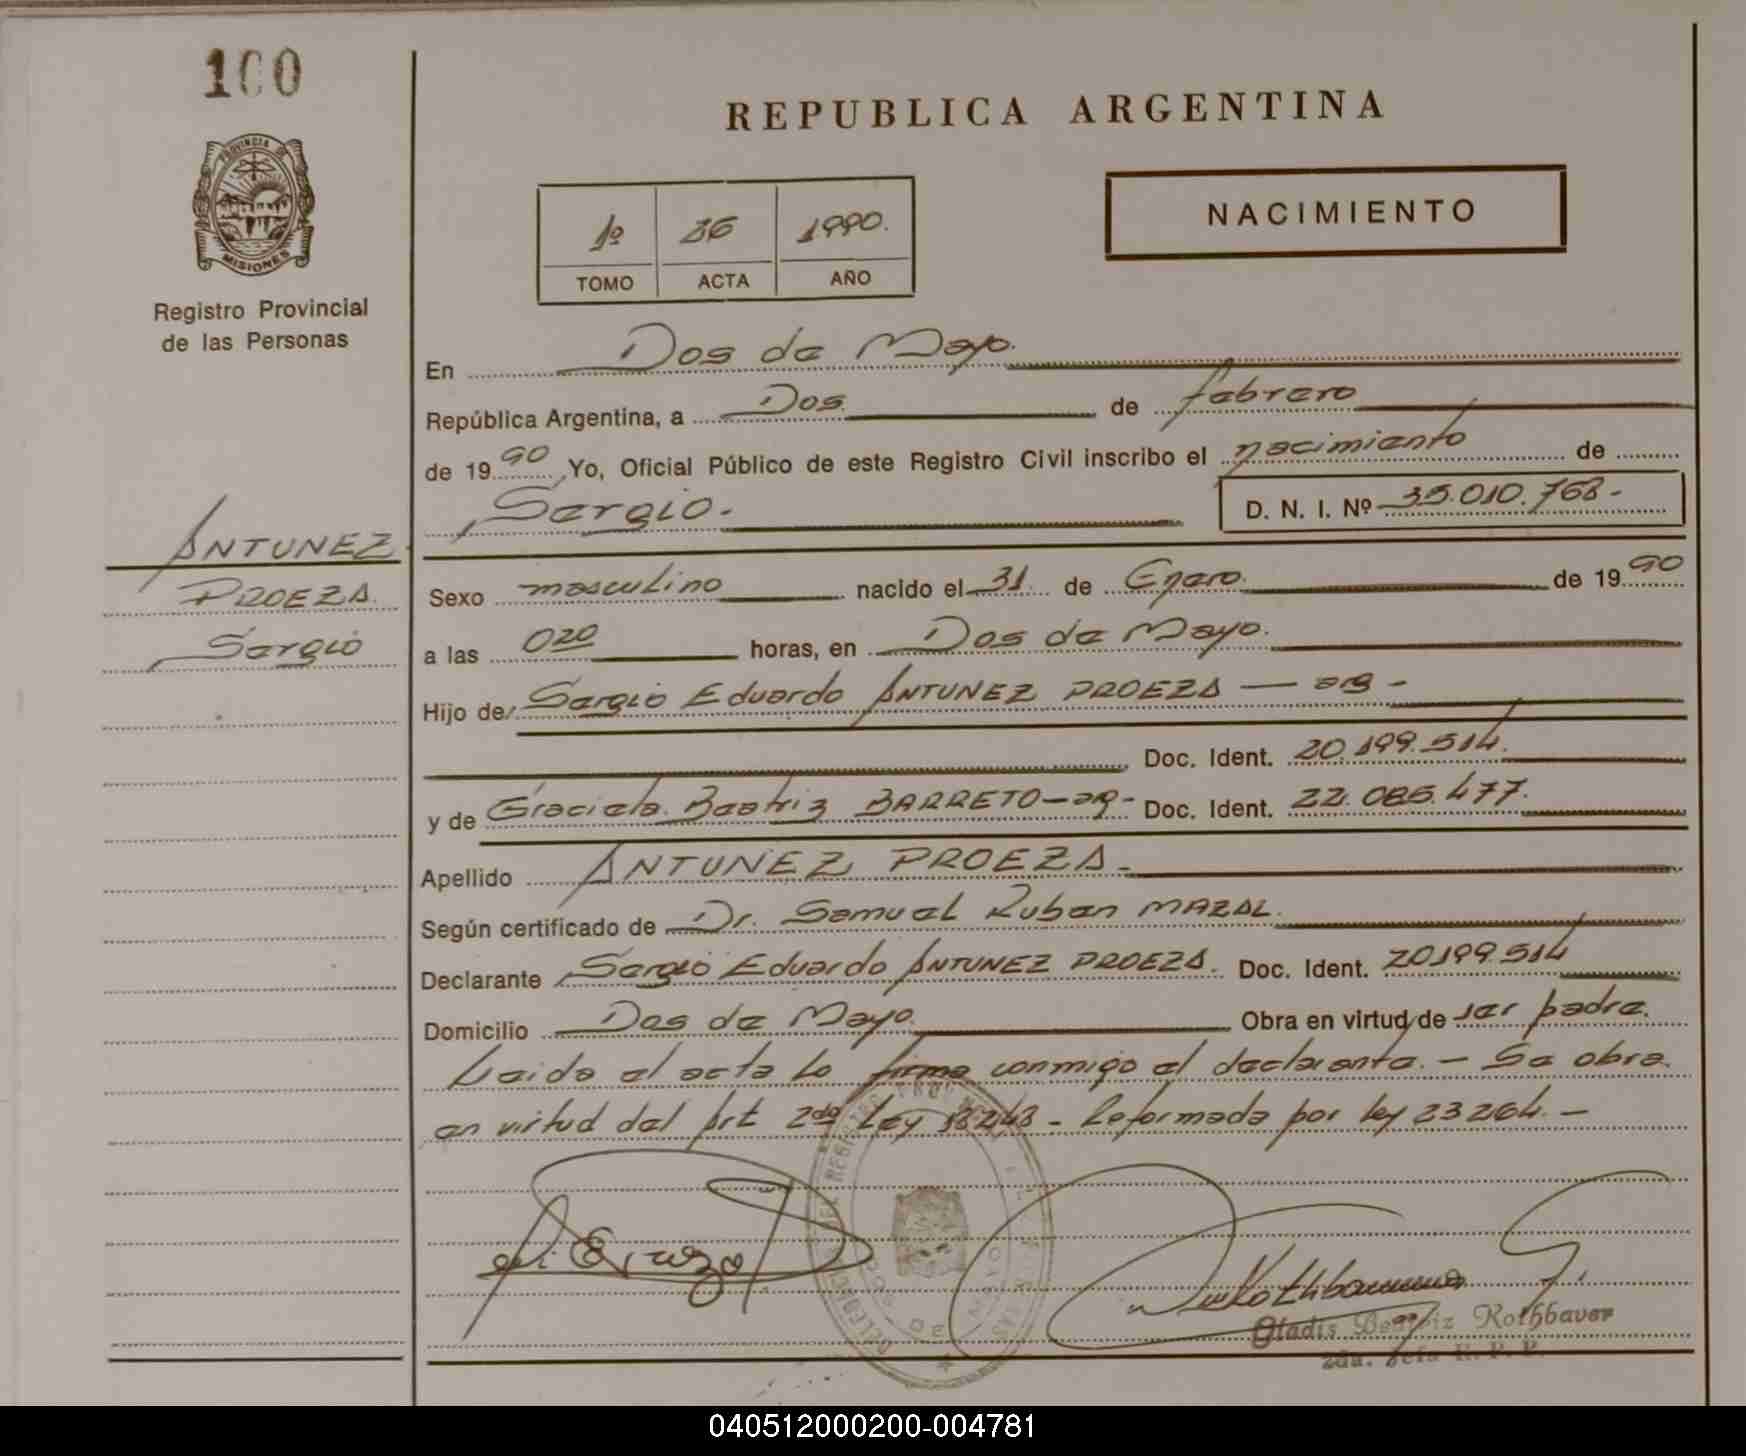 100
PROVINCIA DE
MISIONES
Registro Provincial
de las Personas
ANTUNEZ
PROEZA
Sergio
REPUBLICA ARGENTINA
1º 36 1990.
TOMO ACTA AÑO
NACIMIENTO
En Dos de Mayo.
República Argentina, a Dos de febrero
de 1990 Yo, Oficial Público de este Registro Civil inscribo el nacimiento de
Sergio.-
D. N. I. Nº 35.010.768-
Sexo masculino nacido el 31 de Enero de 1990
a las 020 horas, en Dos de Mayo.
Hijo de Sergio Eduardo ANTUNEZ PROEZA — arg -
Doc. Ident. 20.199.514.
y de Graciela Beatriz BARRETO - arg - Doc. Ident. 22.085.477.
Apellido ANTUNEZ PROEZA.-
Según certificado de Dr. Samuel Ruben MAZAL.
Declarante Sergio Eduardo ANTUNEZ PROEZA. Doc. Ident. 20199514
Domicilio Dos de Mayo. Obra en virtud de ser padre.
Leida el acta lo firma conmigo el declarante. - Se obra
en virtud del Art 2do Ley 18248 - Reformada por ley 23264. -
Gladis Beatriz Rothbaver
2da. Jefa R. P. P.
040512000200-004781